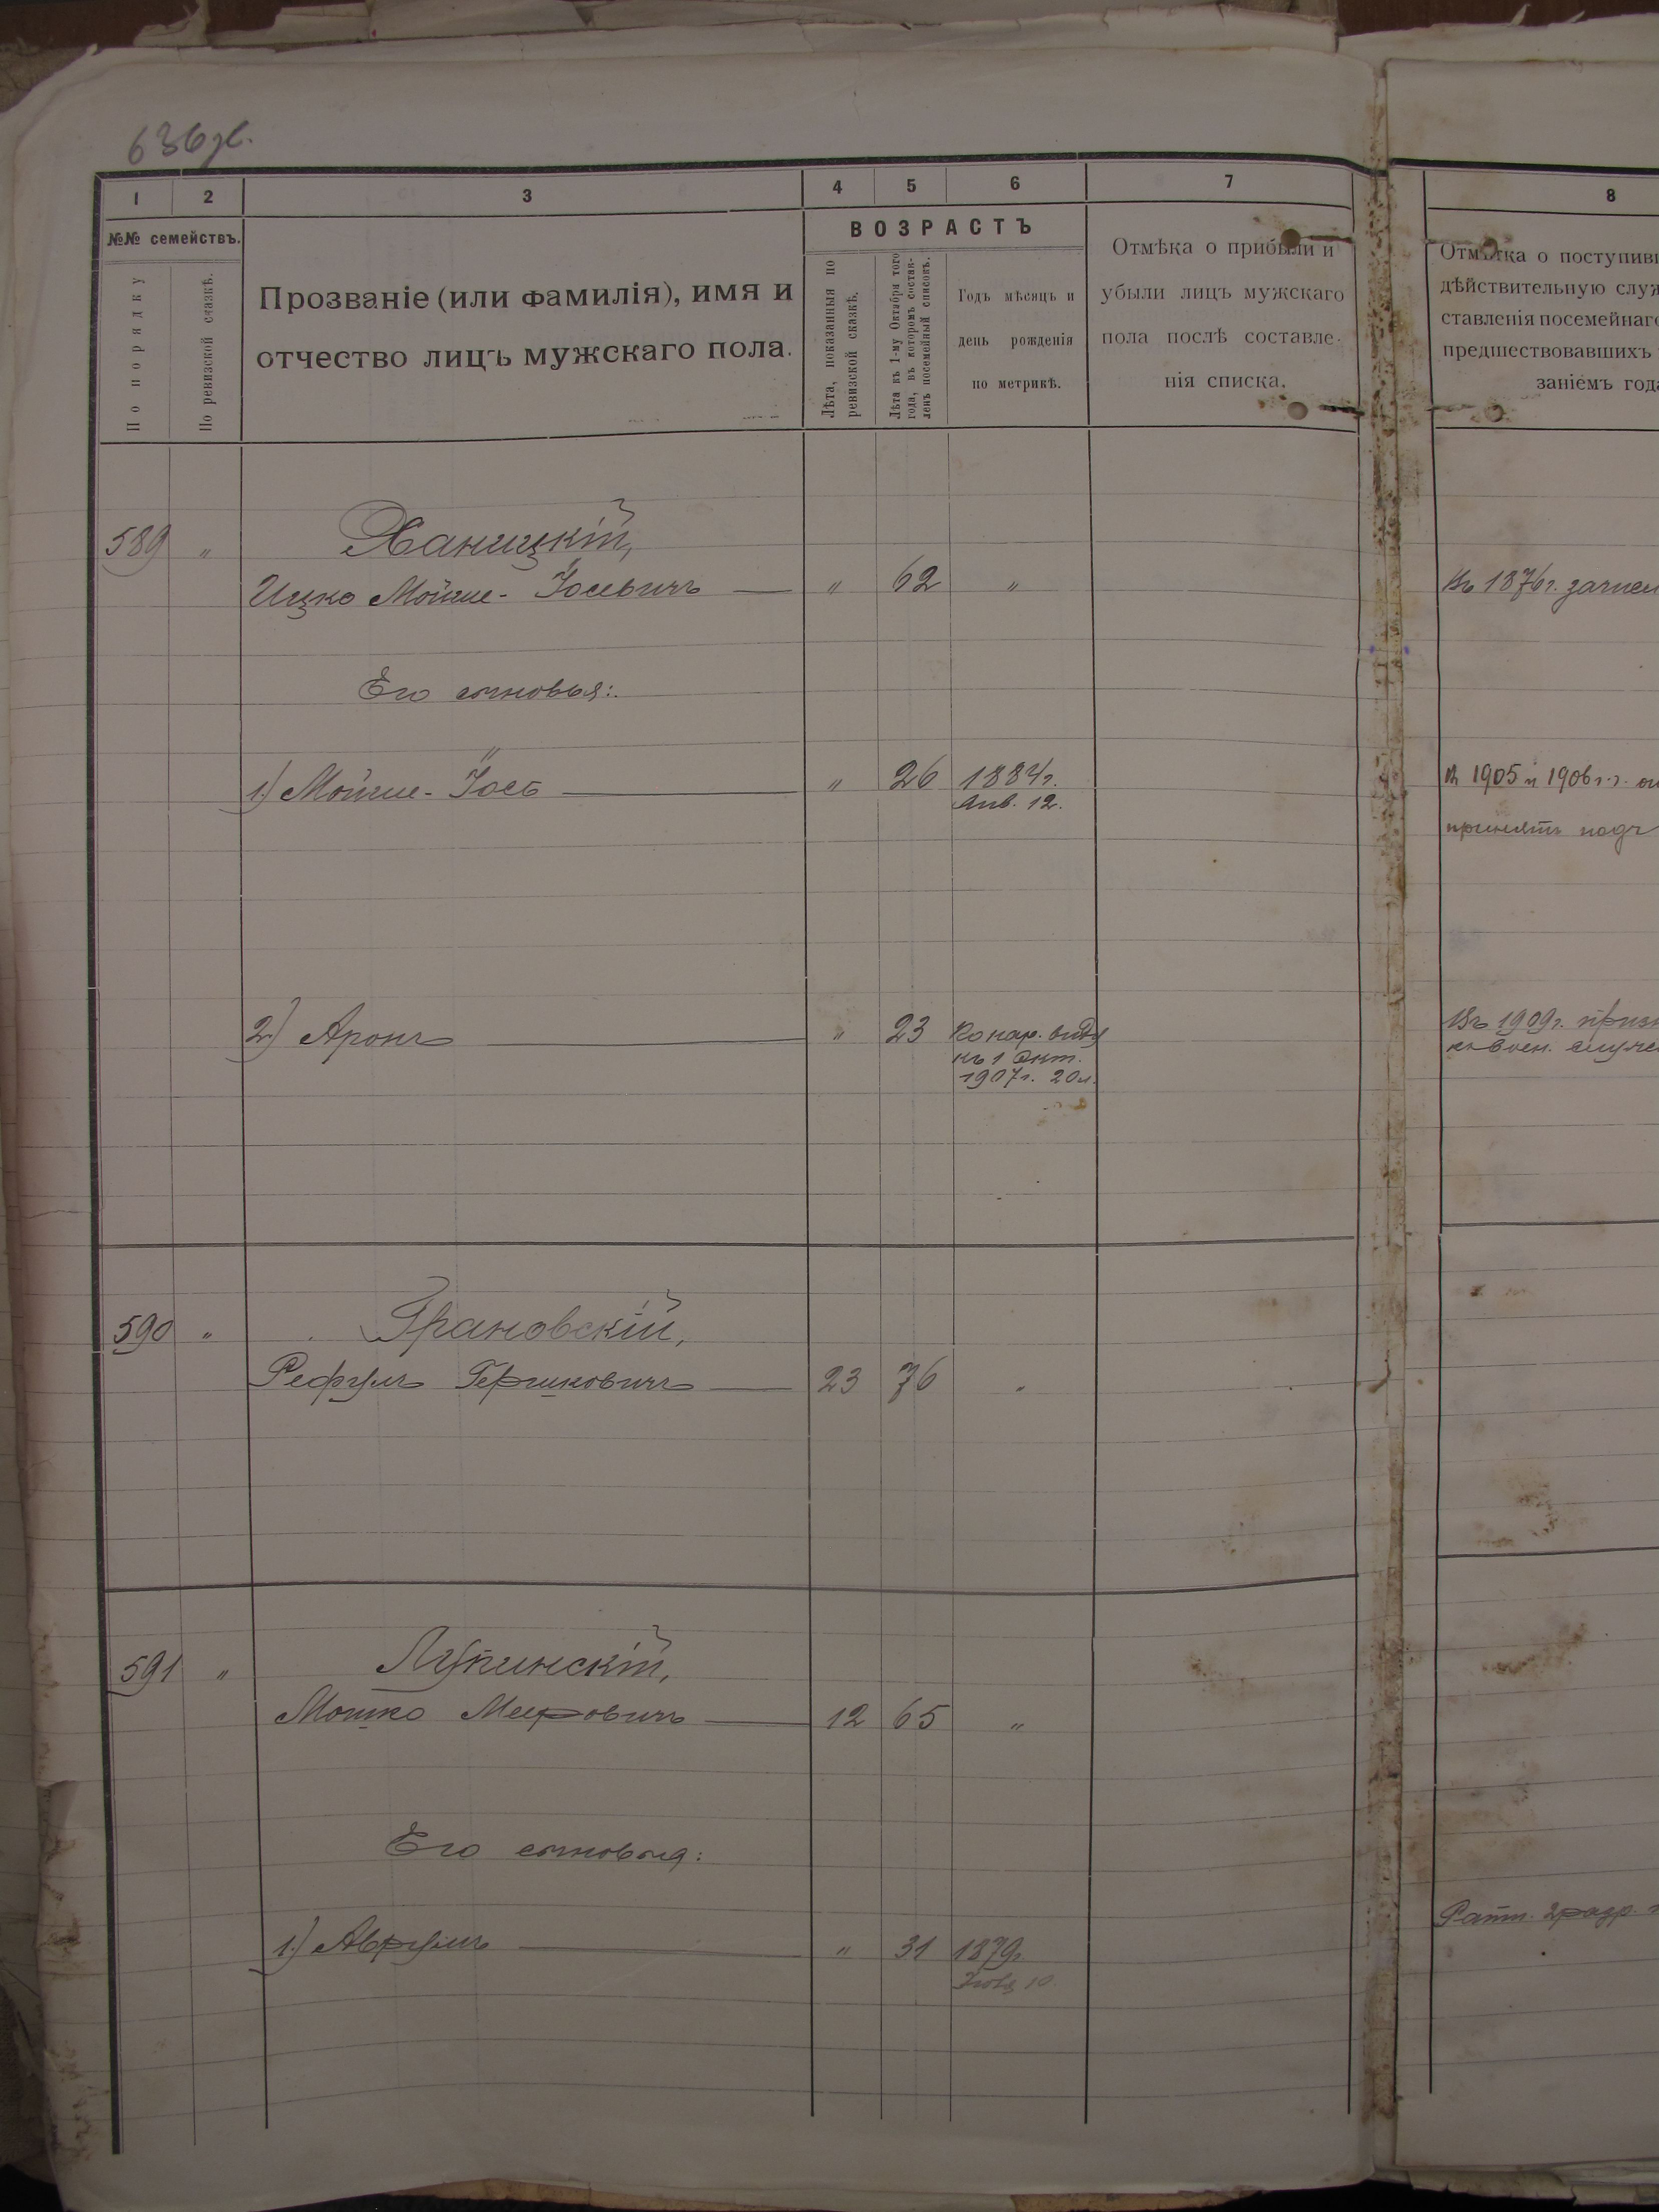 636 зв.
1 2 3 4 5 6 7 8
№№ семействъ.
По порядку
По ревизской сказкѣ.
Прозваніе (или фамилія), имя и
отчество лицъ мужскаго пола.
ВОЗРАСТЪ
Лѣта, показанныя по
ревизской сказкѣ.
Лѣта къ 1-му Октября того
года, въ которомъ состав-
ленъ посемейный списокъ.
Годъ мѣсяцъ и
день рожденія
по метрикѣ.
Отмѣка о прибыли и
убыли лицъ мужскаго
пола послѣ составле-
нія списка.
Отмѣтка о поступивш
дѣйствительную служ
ставленія посемейнаго
предшествовавшихъ
заніемъ года
589 " Ханицкій,
Ицко Мойше-Іосьевичъ — " 62 " Въ 1876 г. зачисл
Его сыновья:
1) Мойше-Іось — " 26 1884 г. В 1905 и 1906 г.г.
Янв. 12.
принять
2) Аронъ — " 23 По нар. виду Въ 1909 г. призн
къ 1 Окт. къ воен. служб
1907 г. 20 л.
590 " Грановскій,
Рефулъ Гершковичъ — 23 76 "
591 " Лупинскій,
Мошко Мееровичъ — 12 65 "
Его сыновья:
1) Аврумъ — " 31 1879 г. Ратн. 2 разр.
10